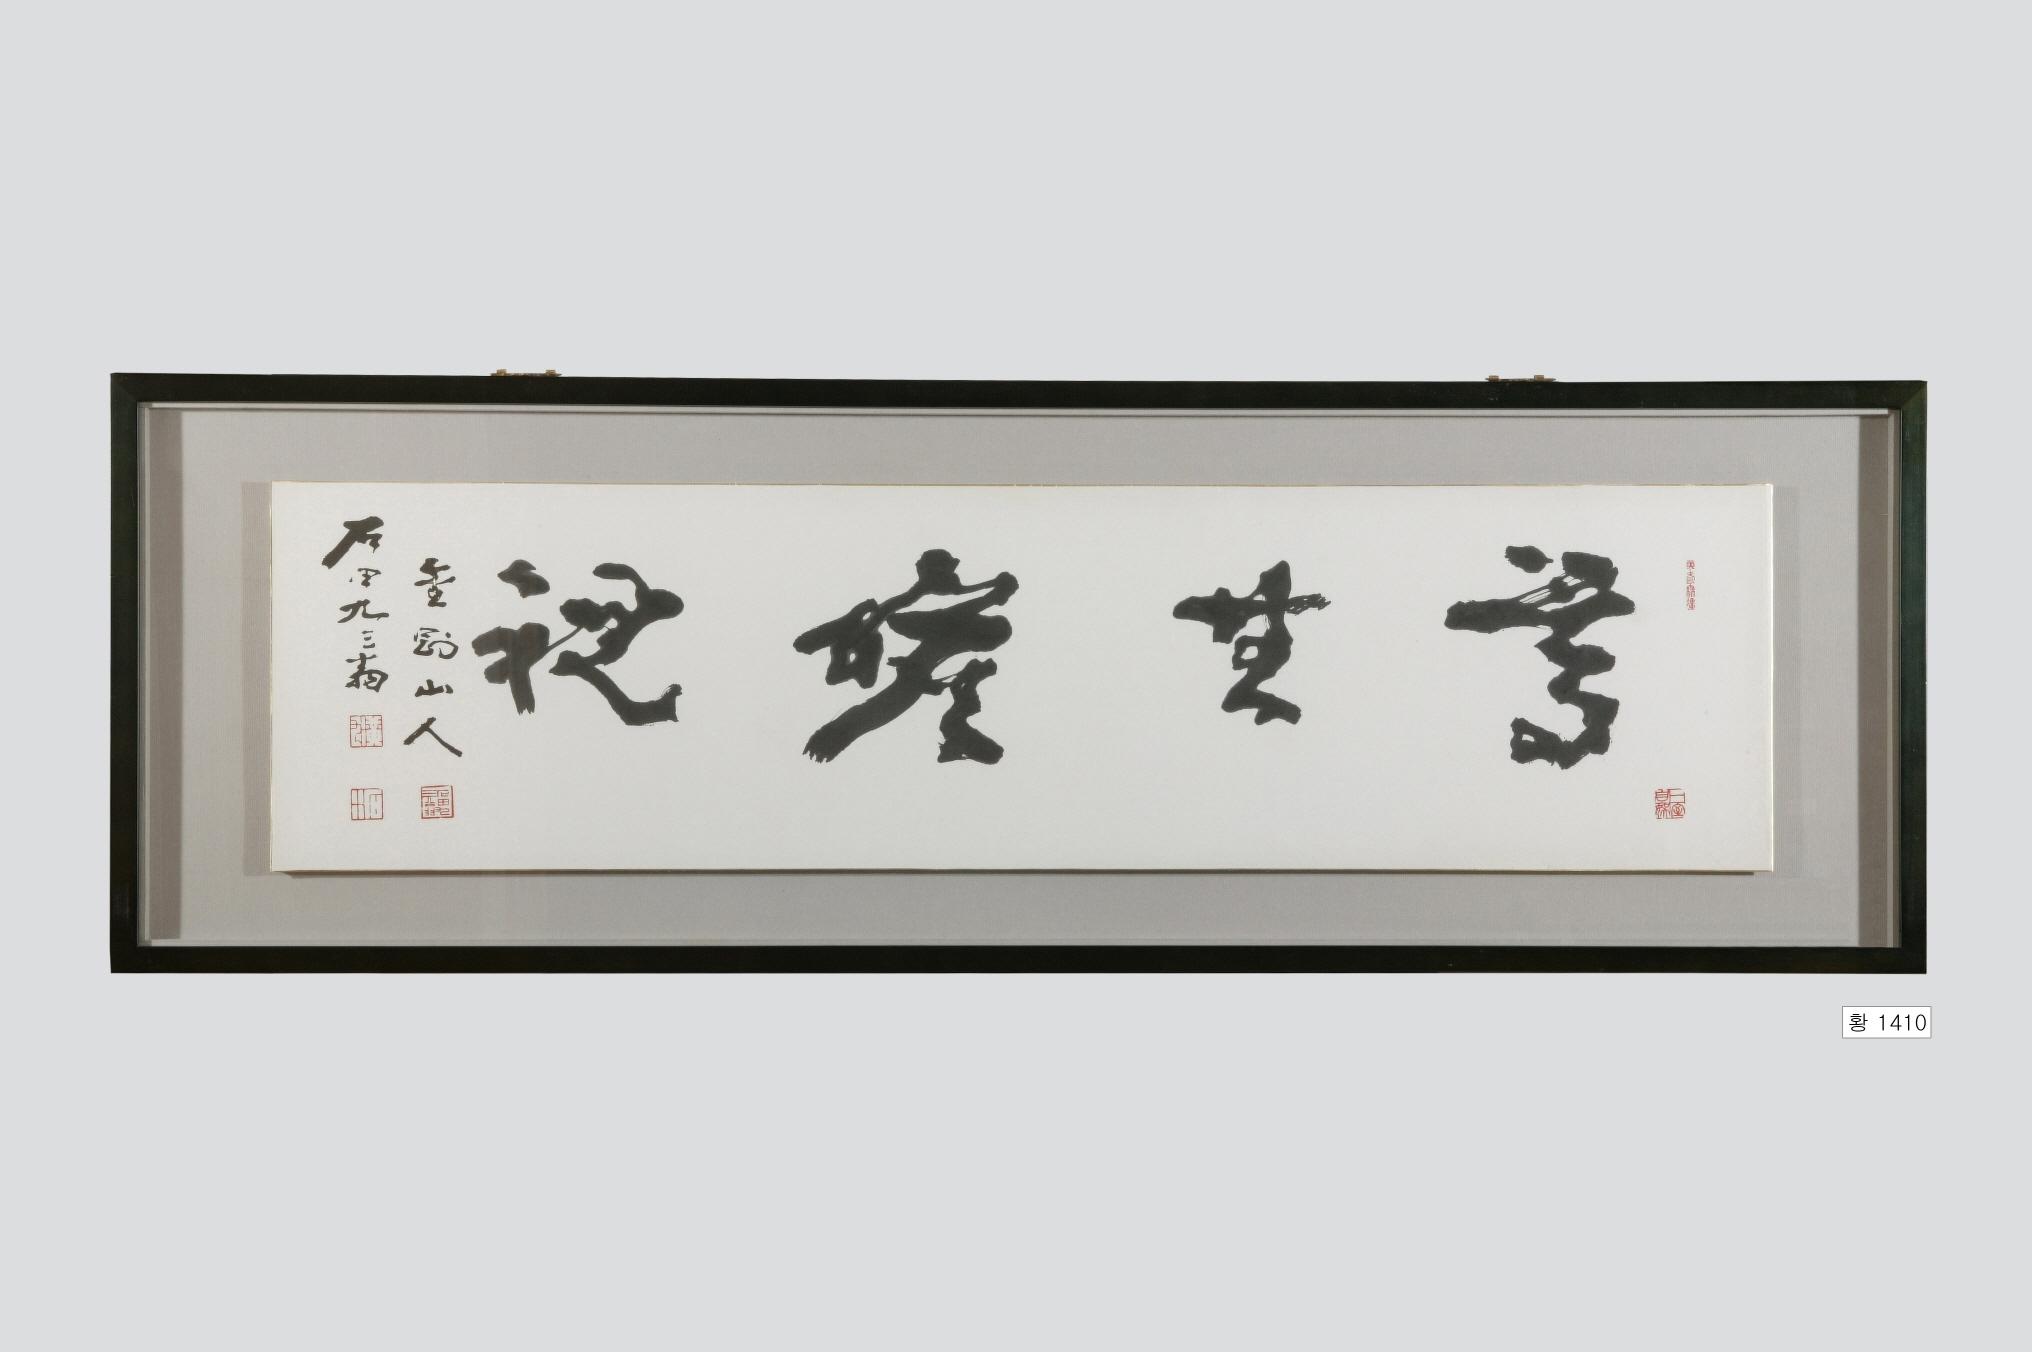 尊其瞻視
金剛山人
石田九三翁
황 1410